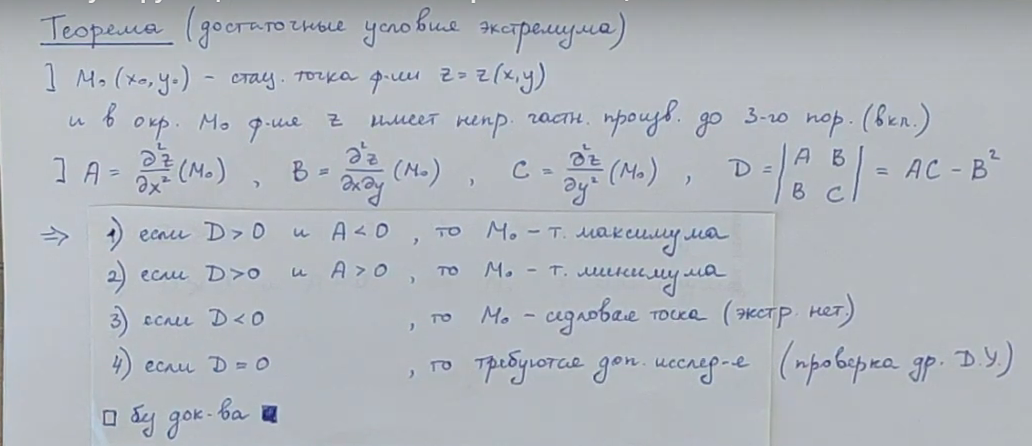 Теорема (достаточные условия экстремума)
] M₀ (x₀, y₀) - стац. точка ф-ии z = z(x,y)
и в окр. M₀ ф-ия z имеет непр. частн. произв. до 3-го пор. (вкл.)
] A = ∂²z/∂x² (M₀) , B = ∂²z/∂x∂y (M₀) , C = ∂²z/∂y² (M₀) , D = |A B; B C| = AC - B²
⇒ 1) если D > 0 и A < 0 , то M₀ - т. максимума
2) если D > 0 и A > 0 , то M₀ - т. минимума
3) если D < 0 , то M₀ - седловая точка (экстр. нет.)
4) если D = 0 , то требуются доп. исслед-е (проверка др. Д.У.)
□ бу док-ва ■